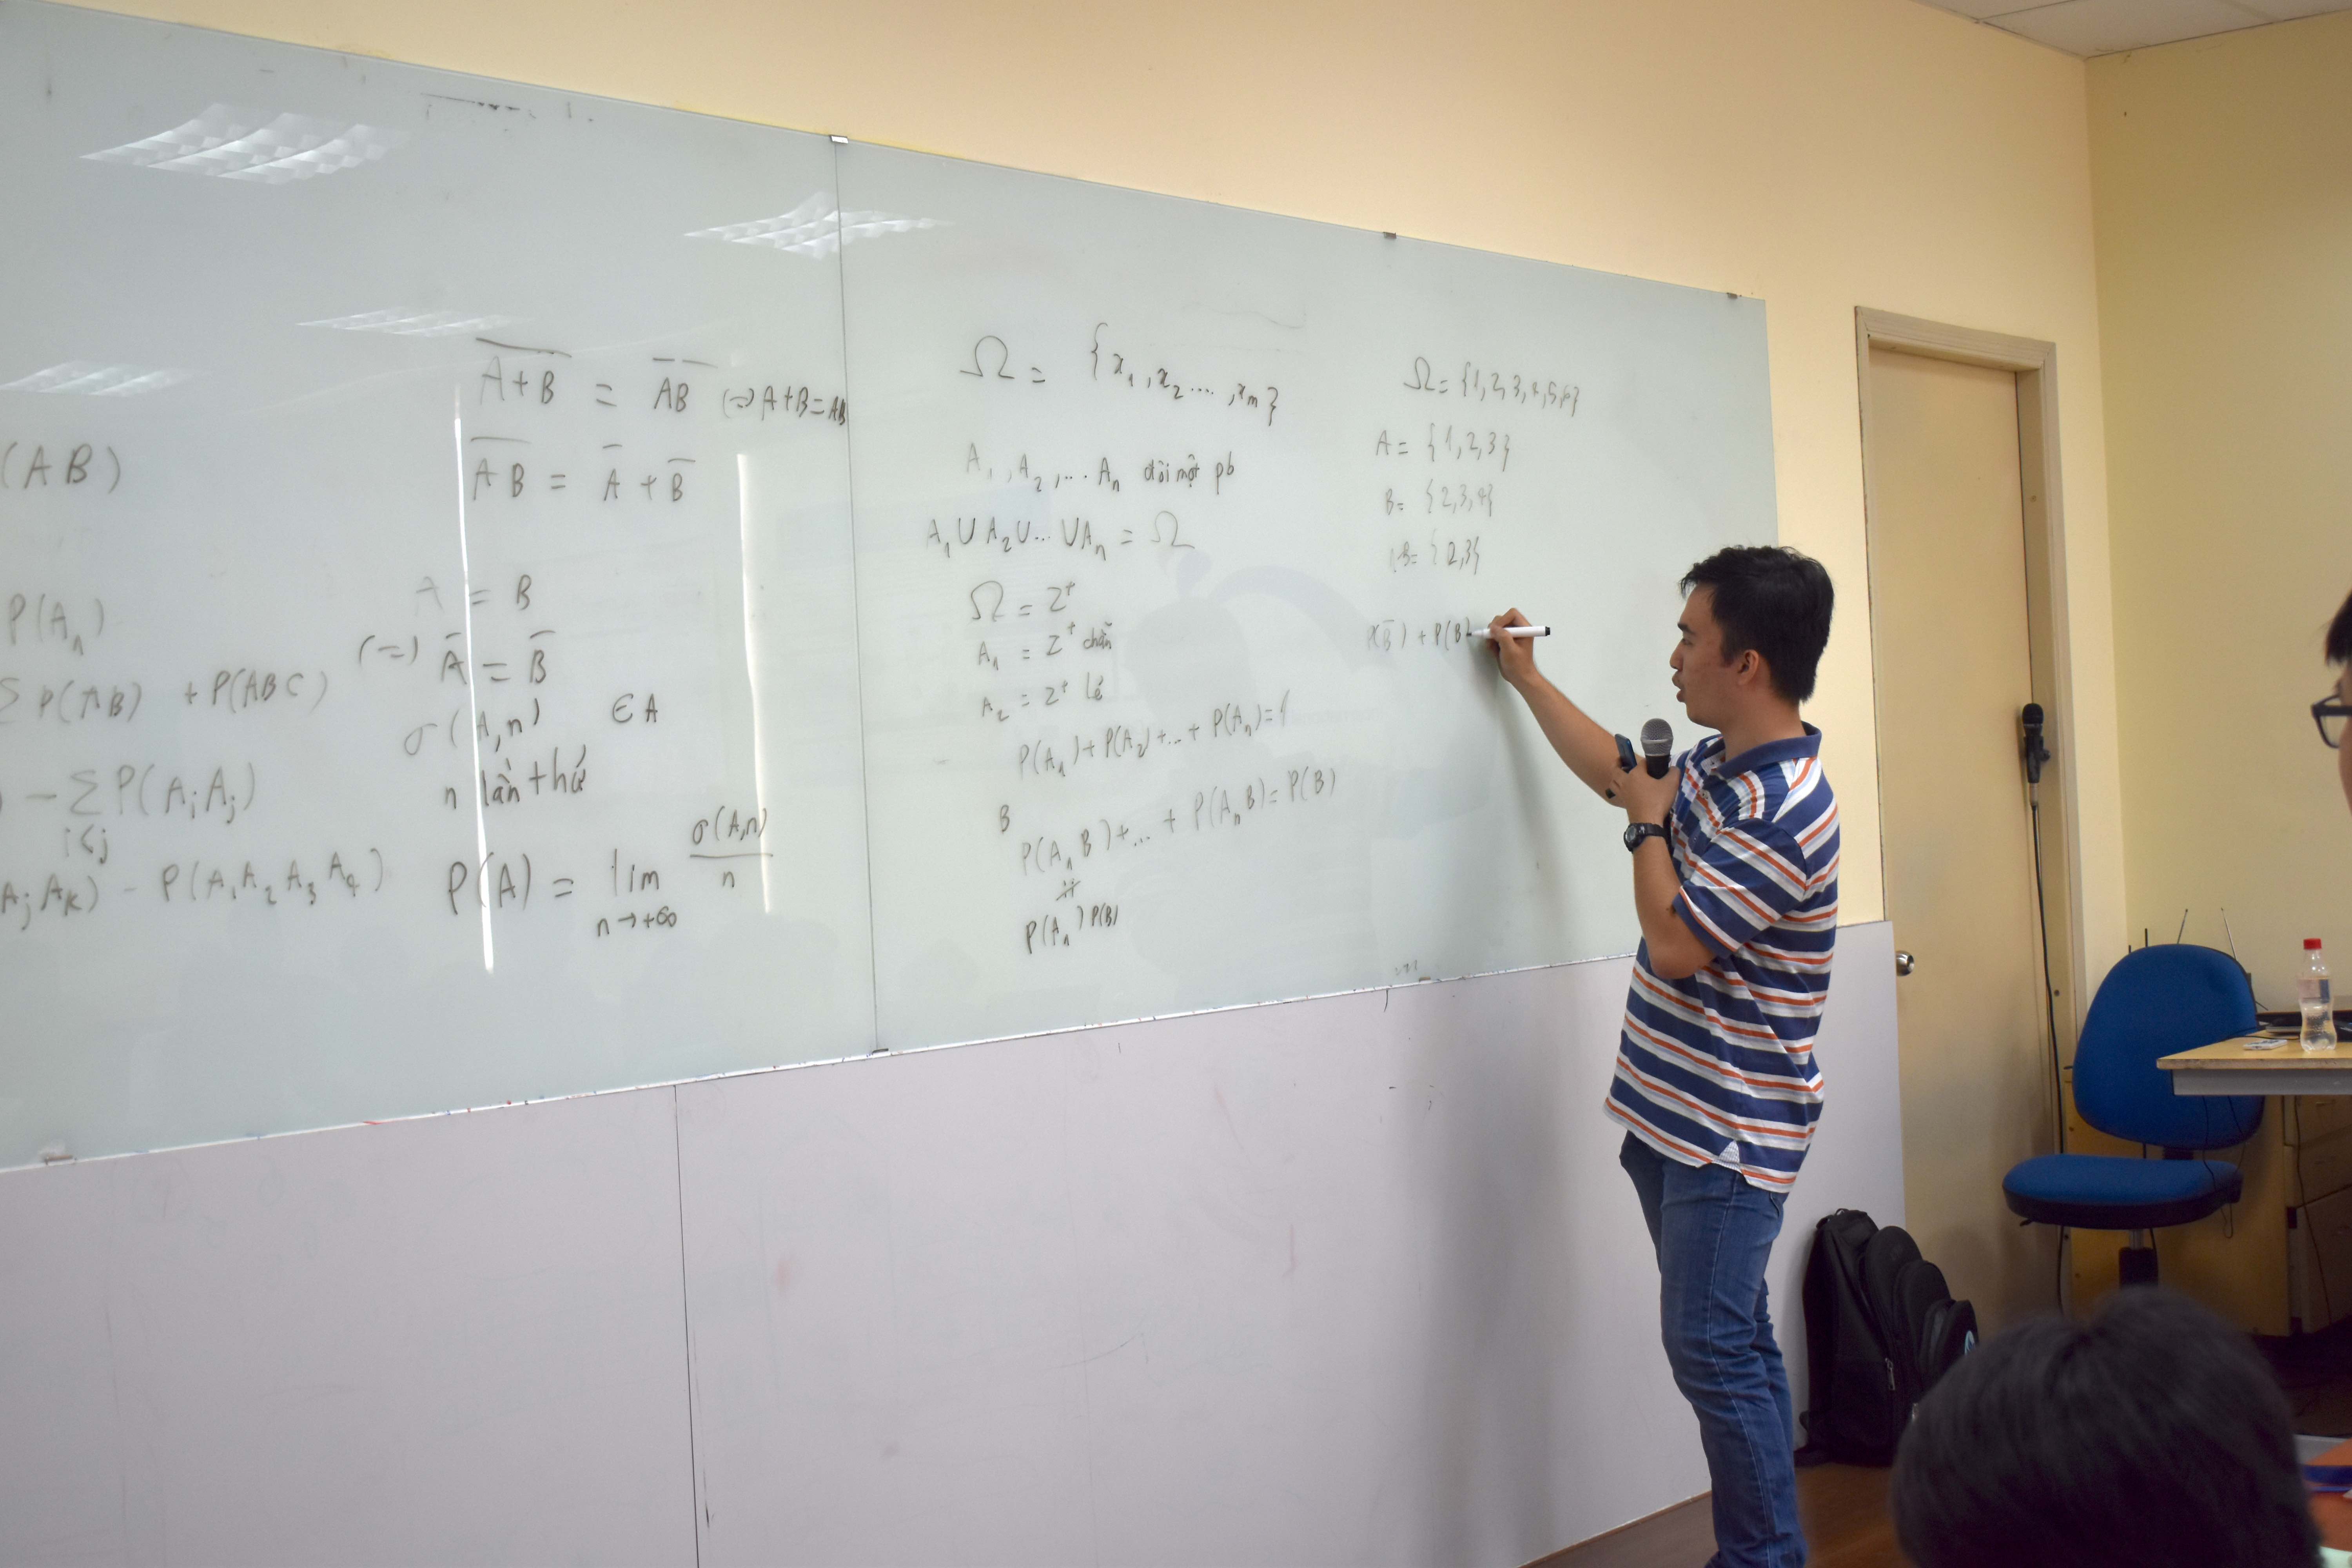 (AB)
P(Aₙ)
Σ P(AB) + P(ABC)
) - Σ P(AᵢAⱼ)
i<j
AⱼAₖ) - P(A₁A₂A₃A₄)
\overline{A+B} = \overline{AB} (=) A+B=AB
\overline{AB} = \overline{A} + \overline{B}
A = B
(=) \overline{A} = \overline{B}
σ(A,n) ∈A
n lần thử
P(A) = lim σ(A,n)/n
n→+∞
Ω = {x₁, x₂ ...., xₘ}
A₁, A₂, ... Aₙ đôi một pb
A₁ ∪ A₂ ∪ ... ∪ Aₙ = Ω
Ω = Z⁺
A₁ = Z⁺ chẵn
A₂ = Z⁺ lẻ
P(A₁) + P(A₂) + ... + P(Aₙ) = 1
B
P(A₁B) + ... + P(AₙB) = P(B)
P(A₁)P(B)
Ω = {1,2,3,4,5,6}
A = {1,2,3}
B = {2,3,4}
AB = {2,3}
P(\overline{B}) + P(B)